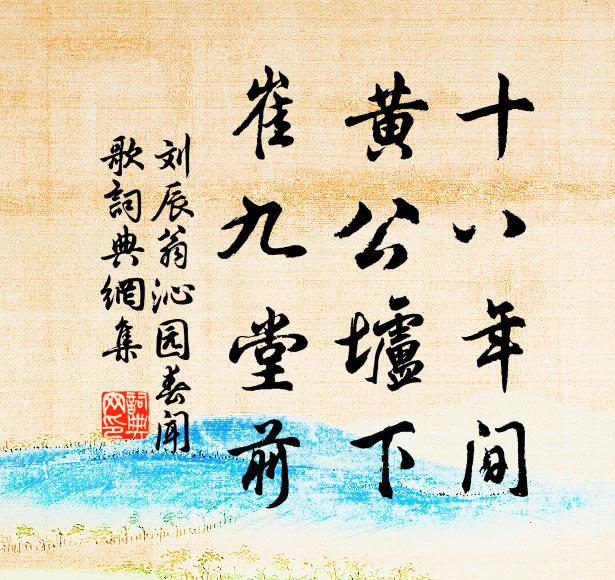 十八年间
黄公壚下
崔九堂前
刘辰翁沁园春闻
歌詞典網集
詞典
网印